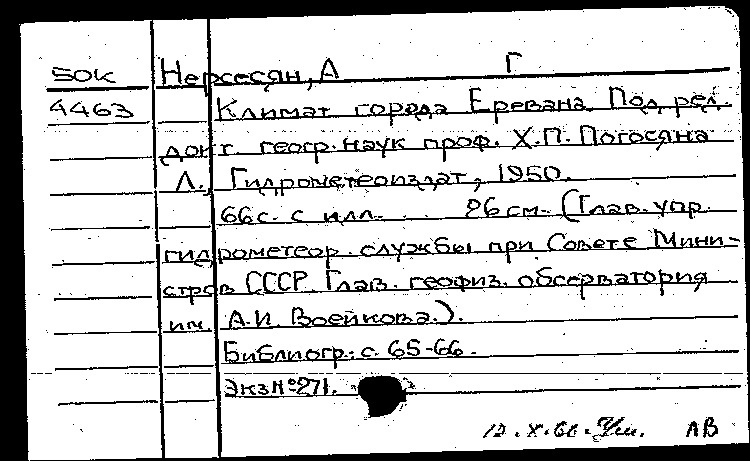 50К Нерсесян, А Г
4463 Климат города Еревана. Под ред.
докт. геогр. наук проф. Х.П. Погосяна
Л., Гидрометеоиздат, 1950.
66с. с илл. 26 см. (Глав. упр.
гидрометеор. службы при Совете Мини-
стров СССР. Глав. геофиз. обсерватория
им. А.И. Воейкова.).
Библиогр.: с. 65-66.
Экз № 271.
12.X.61. АВ